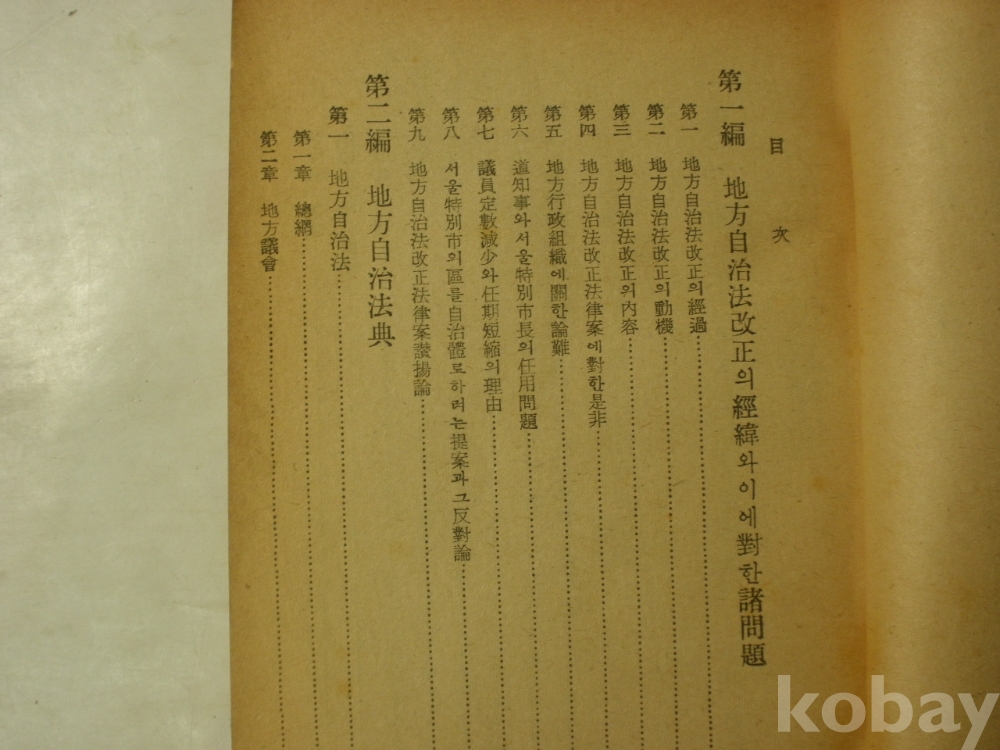 目 次
第一編 地方自治法改正의經緯와이에對한諸問題
第一 地方自治法改正의經過
第二 地方自治法改正의動機
第三 地方自治法改正의內容
第四 地方自治法改正法律案에對한是非
第五 地方行政組織에關한論難
第六 道知事와서울特別市長의任用問題
第七 議員定數減少와任期短縮의理由
第八 서울特別市의區를自治體로하려는提案과그反對論
第九 地方自治法改正法律案讚揚論
第二編 地方自治法典
第一 地方自治法
第一章 總綱
第二章 地方議會
kobay